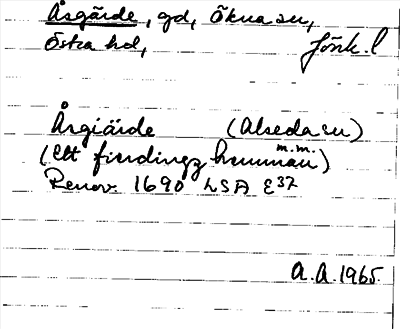 Åsgärde, gd, Ökna sn,
Östra hd, Jönk. l
Årgiärde (Alseda sn)
(Ett fierdingz hemman m.m.)
Renov. 1690 LSA E37
A.A. 1965.